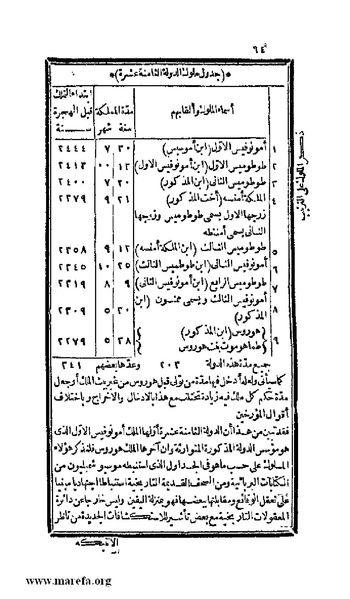 ٦٤
*(جدول ملوك الدولة الثامنة عشرة)*
أسماء الملوك وألقابهم مدة المملكة سنة شهر ابتداء الملك قبل الهجرة سنة
١ أمونوفيس الاول (ابن أموسيس) ٣٠ ٧ ٢٤٤٤
٢ طوطوميس الاول (ابن أمونوفيس الاول) ١٣ ٠٠ ٢٤١٣
٣ طوطوميس الثانى (ابن المذكور) ٢٠ ٧ ٢٤٠٠
٤ الملكة أمنسه (أخت المذكور) ٢١ ٩ ٢٣٧٩
زوجها الاول يسمى طوطوميس وزوجها
الثانى يسمى أمنطه
٥ طوطوميس الثالث (ابن الملكة أمنسه) ١٢ ٩ ٢٣٥٨
٦ أمونوفيس الثانى (ابن طوطوميس الثالث) ٢٥ ١٠ ٢٣٤٥
٧ طوطوميس الرابع (ابن أمونوفيس الثانى) ٩ ٨ ٢٣١٩
٨ أمونوفيس الثالث ويسمى ممنون (ابن ٢٠ ٥ ٢٣٠٩
المذكور)
٩ هوروس (ابن المذكور) ٢٨ ٥ ٢٢٧٩
طماهوموت بنت هوروس
جميع مدة هذه الدولة ٢٠٣ وعدها بعضهم ٢٤١
كما سيأتى ولعله أدخل فيها مدة من تولى قبل هوروس من غير بيت الملك أو جعل
مدة حكم كل ملك فيه زيادة تختلف مع هذا بالادخال والاخراج وباختلاف
أقوال المؤرخين
فقد تبين من هذا أن الدولة الثامنة عشرة أولها الملك أمونوفيس الاول الذى
هو مؤسس الدولة المذكورة المتوارثة وان آخرها الملك هوروس فلنذكر هؤلاء
الملوك على حسب ما هو فى الجداول الذى استنبطه موسيو شمبليون من
الكتابات البربائية ومن الصحف القديمة التاريخية استنباطا اجتهاديا مبنيا
على تعقل الوقائع ومقابلتها ببعضها فهو بمنزلة اليقين وليس خارجا عن دائرة
المعقولات التاريخية مع بعض تأشير للاستكشافات الجديدة من ناظر
الانتيكه
ذكر الملوك على الترتيب
www.marefa.org